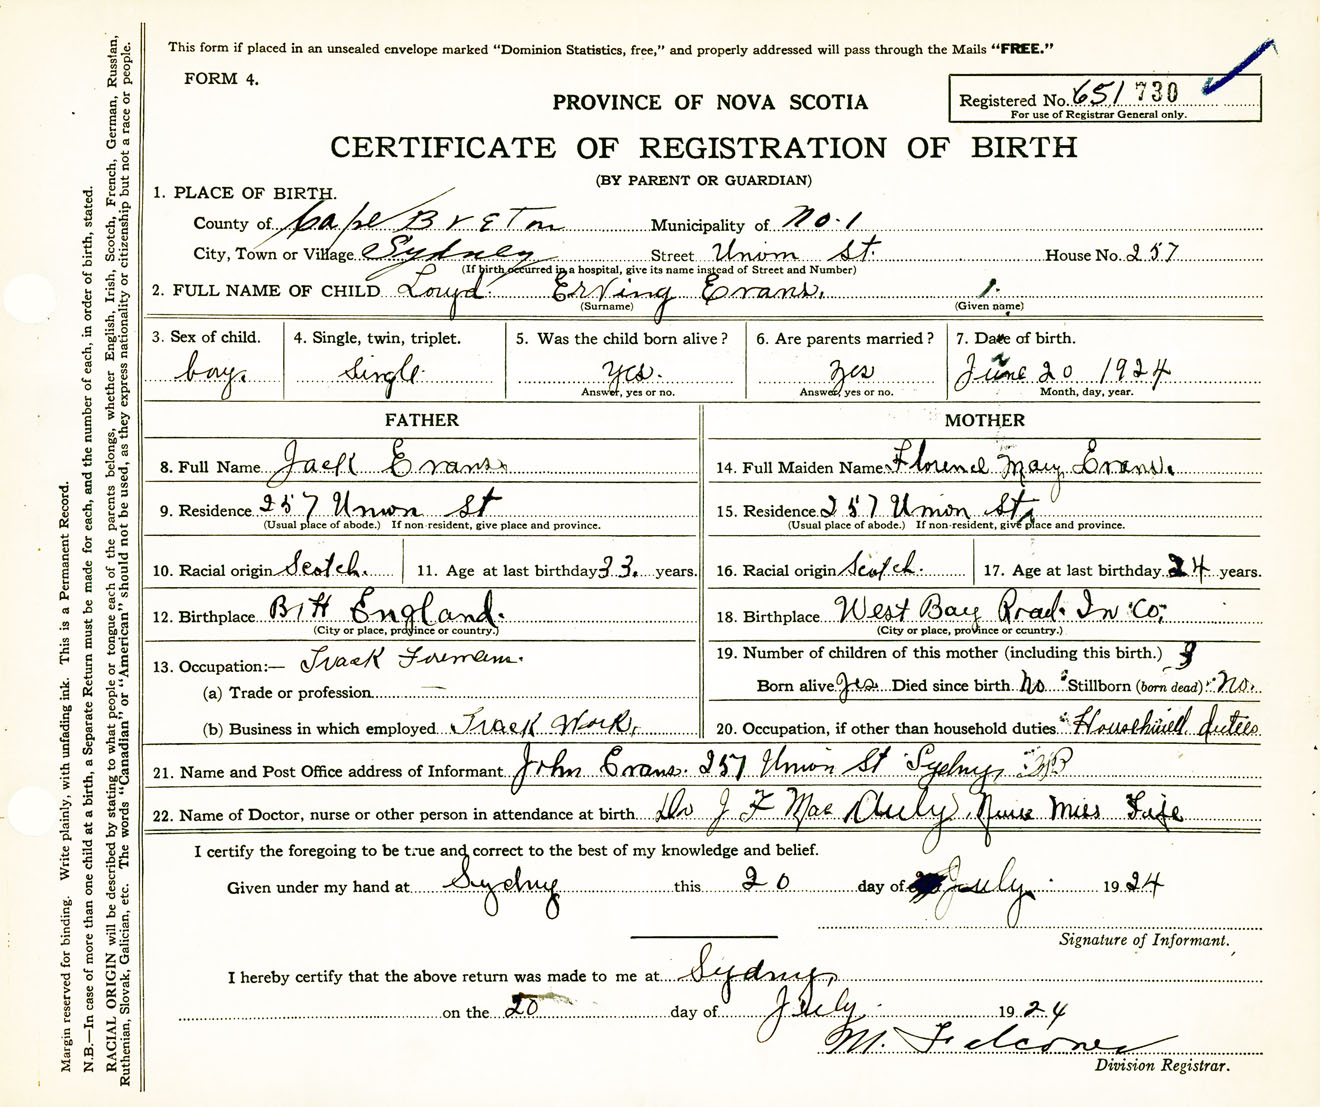 This form if placed in an unsealed envelope marked “Dominion Statistics, free,” and properly addressed will pass through the Mails “FREE.”
FORM 4.
Registered No. 651 730
For use of Registrar General only.
PROVINCE OF NOVA SCOTIA
CERTIFICATE OF REGISTRATION OF BIRTH
(BY PARENT OR GUARDIAN)
1. PLACE OF BIRTH.
County of Cape Breton Municipality of No. 1
City, Town or Village Sydney Street Union St. House No. 257
(If birth occurred in a hospital, give its name instead of Street and Number)
2. FULL NAME OF CHILD Loyd Erving Evans.
(Surname) (Given name)
3. Sex of child. 4. Single, twin, triplet. 5. Was the child born alive? 6. Are parents married? 7. Date of birth.
boy. Single. yes. yes June 20 1924
Answer, yes or no. Answer, yes or no. Month, day, year.
FATHER MOTHER
8. Full Name Jack Evans 14. Full Maiden Name Florence May Evans.
9. Residence 257 Union St 15. Residence 257 Union St
(Usual place of abode.) If non-resident, give place and province. (Usual place of abode.) If non-resident, give place and province.
10. Racial origin Scotch. 11. Age at last birthday 33. years. 16. Racial origin Scotch. 17. Age at last birthday 24 years.
12. Birthplace England. 18. Birthplace West Bay Road. In Co.
(City or place, province or country.) (City or place, province or country.)
13. Occupation:— Track Foreman. 19. Number of children of this mother (including this birth.) 3
(a) Trade or profession — Born alive yes. Died since birth No Stillborn (born dead) No.
(b) Business in which employed Track Work. 20. Occupation, if other than household duties Household duties
21. Name and Post Office address of Informant John Evans. 257 Union St Sydney,
22. Name of Doctor, nurse or other person in attendance at birth Dr J F Mac Auly, Nurse Miss Fife
I certify the foregoing to be true and correct to the best of my knowledge and belief.
Given under my hand at Sydney this 20 day of July 1924
Signature of Informant.
I hereby certify that the above return was made to me at Sydney,
on the 20 day of July 1924
M. Falconer
Division Registrar.
Margin reserved for binding. Write plainly, with unfading ink. This is a Permanent Record.
N.B.—In case of more than one child at a birth, a Separate Return must be made for each, and the number of each, in order of birth, stated.
RACIAL ORIGIN will be described by stating to what people or tongue each of the parents belongs, whether English, Irish, Scotch, French, German, Russian,
Ruthenian, Slovak, Galician, etc. The words “Canadian” or “American” should not be used, as they express nationality or citizenship but not a race or people.